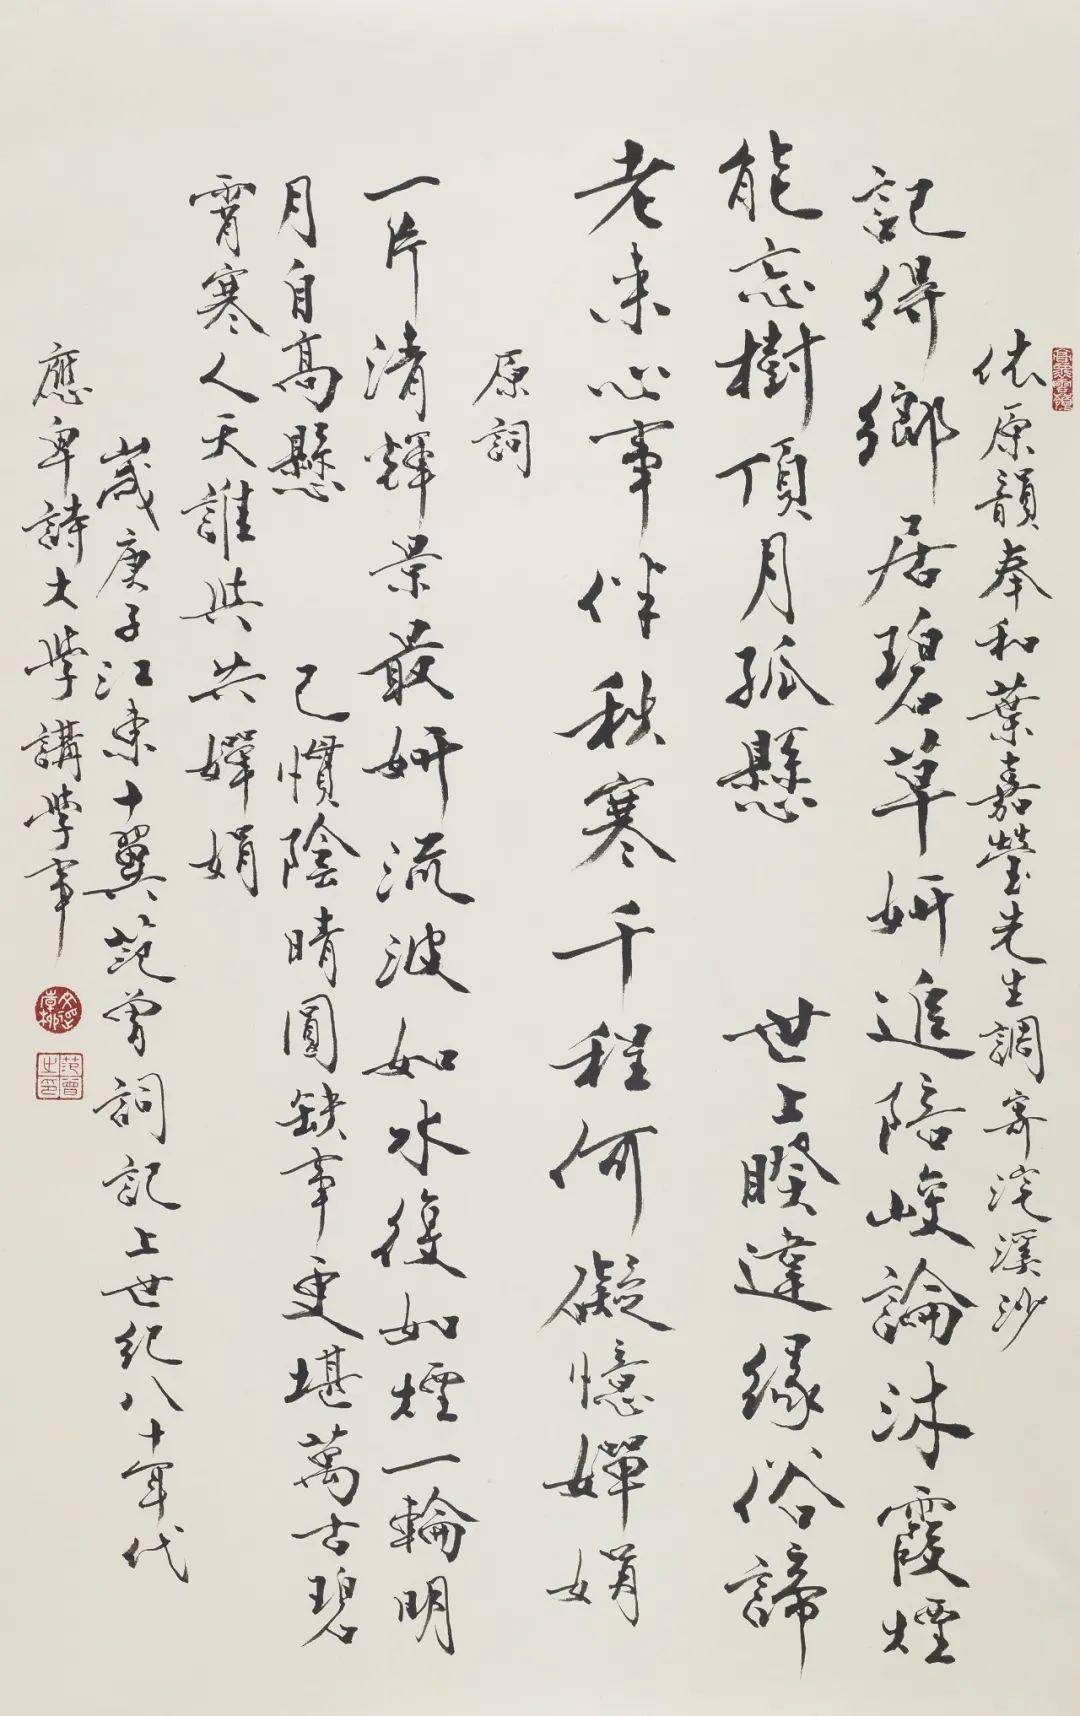 依原韻奉和葉嘉瑩先生調寄浣溪沙
記得鄉居碧草妍追陪峻論沐霞煙
能忘樹頂月孤懸 世上睽違緣俗諦
老來心事伴秋寒千程何礙憶嬋娟
原詞
一片清輝景最妍流波如水復如煙一輪明
月自高懸 已慣陰晴圓缺事更堪萬古碧
霄寒人天誰與共嬋娟
歲庚子江東十翼范曾詞記上世紀八十年代
應卑詩大學講學事
范曾之印